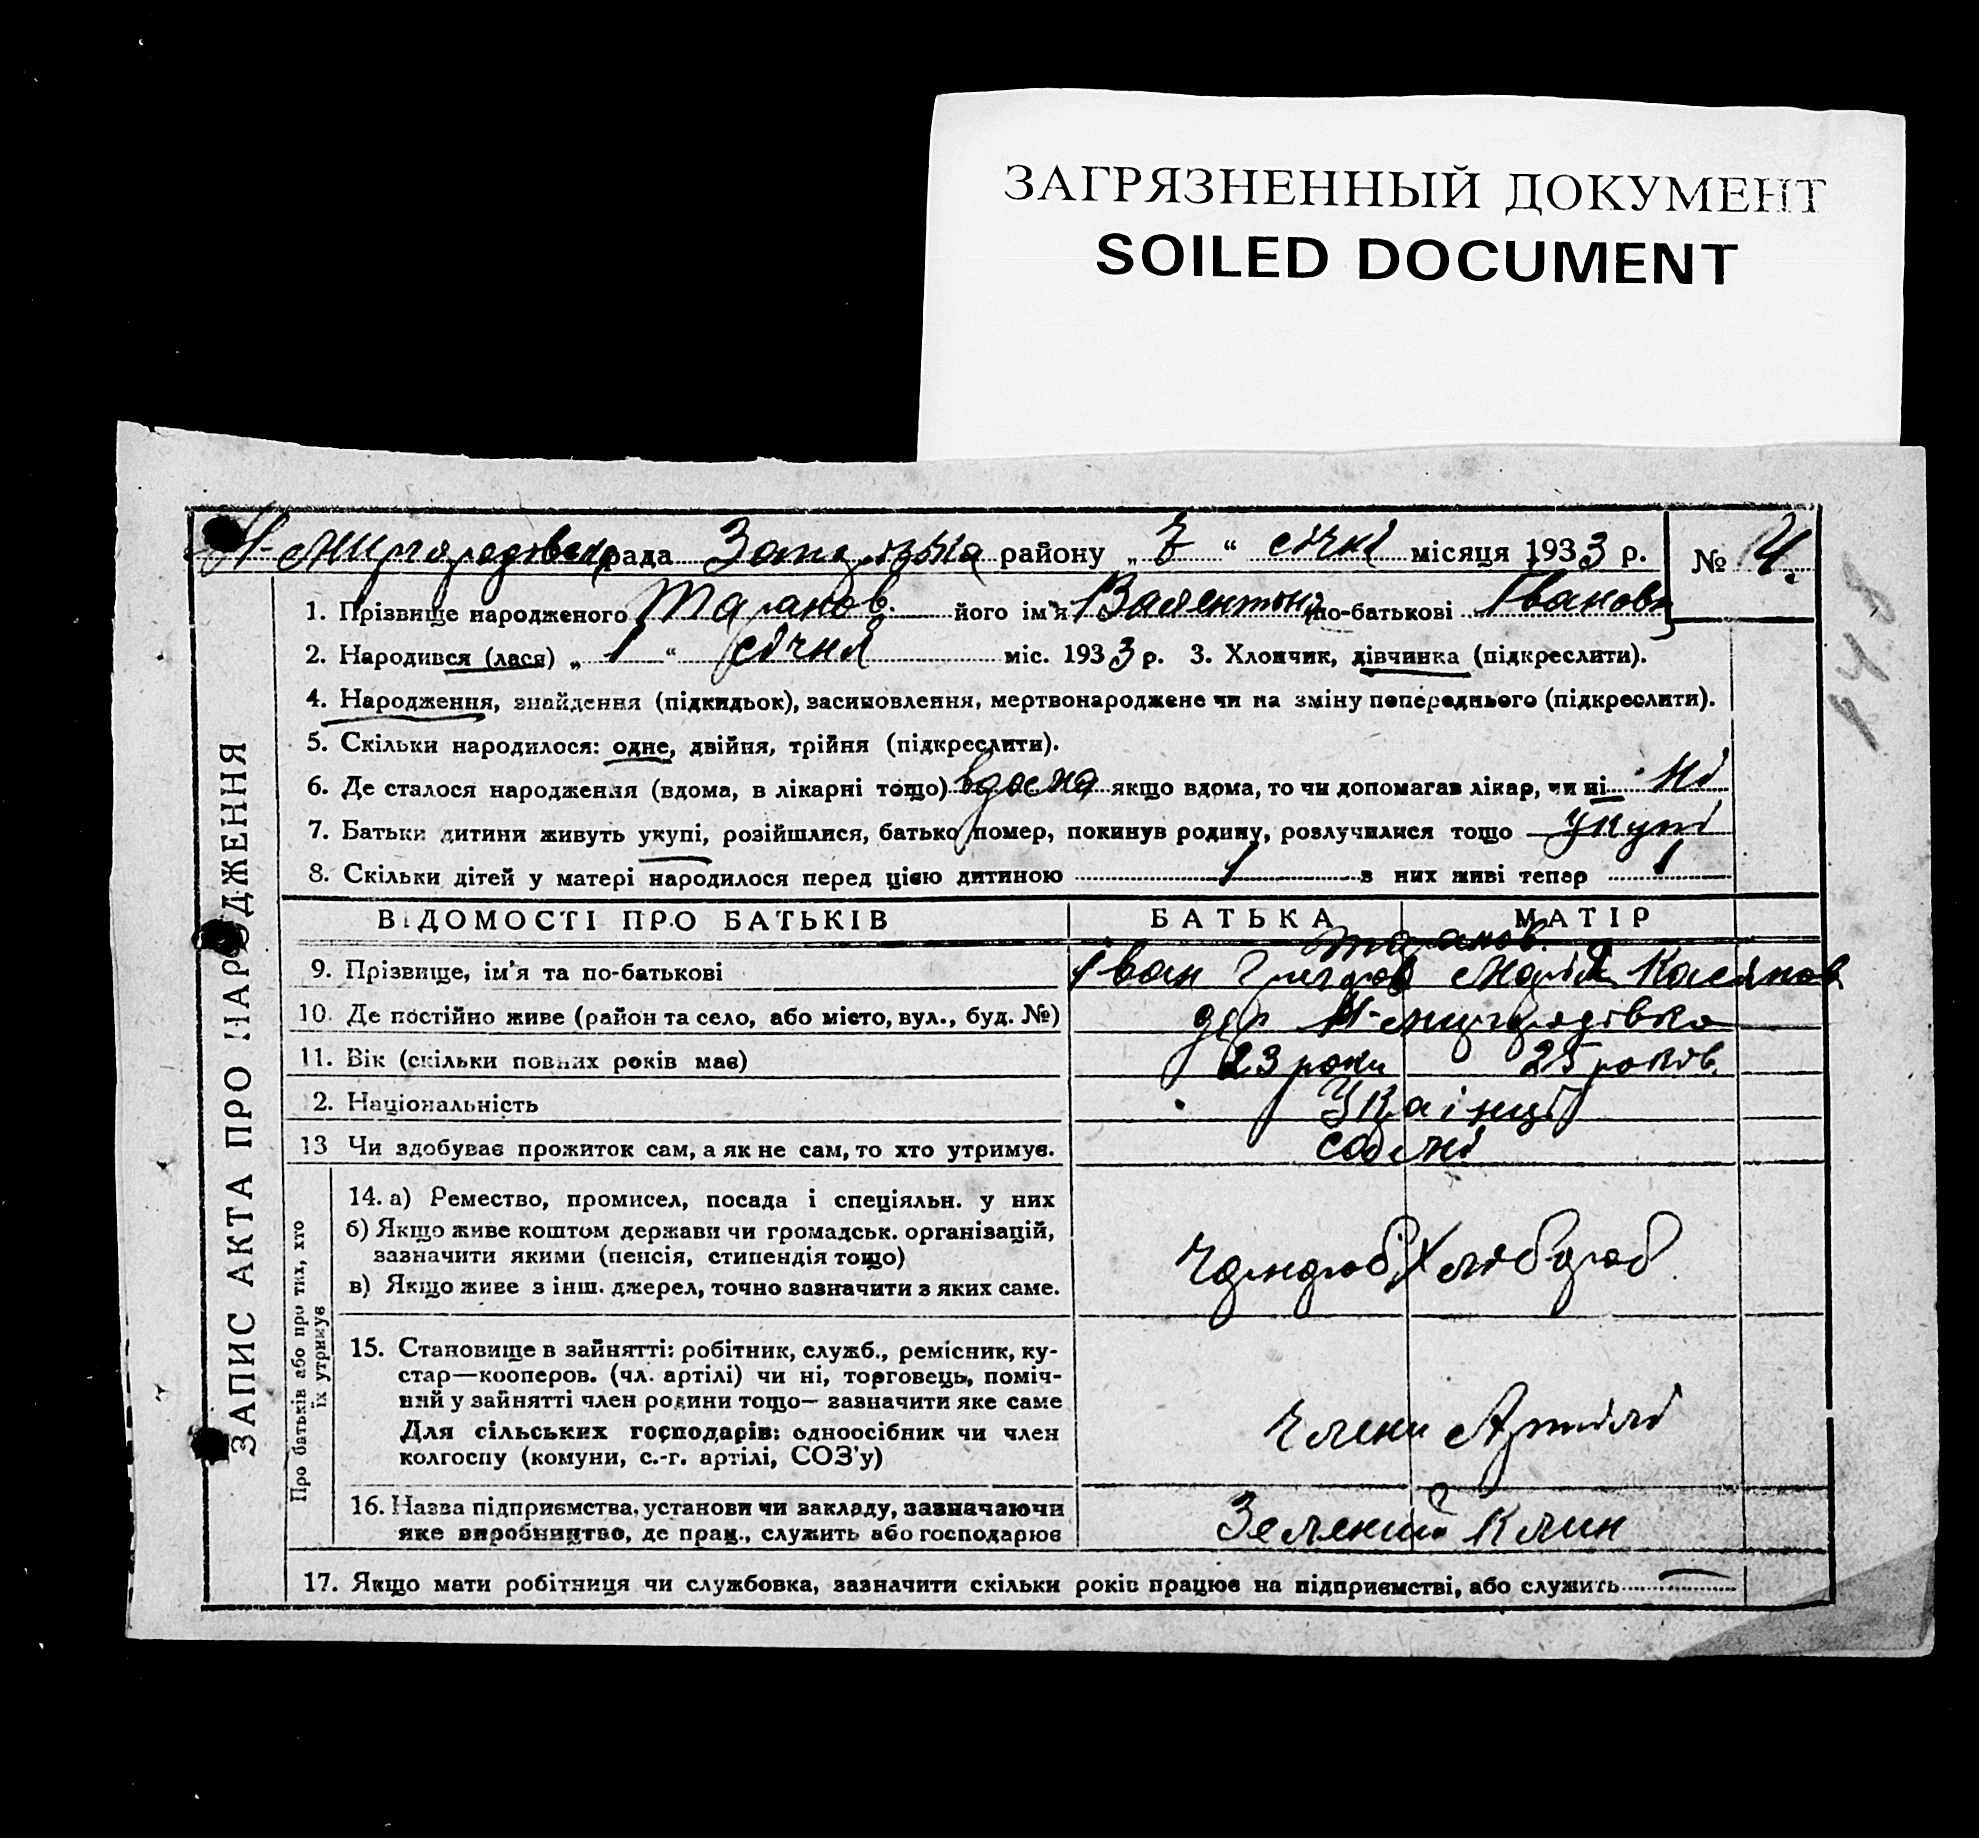 ЗАГРЯЗНЕННЫЙ ДОКУМЕНТ
SOILED DOCUMENT
рада району „ 7 “ січні місяця 1933 р. № 4.
148
ЗАПИС АКТА ПРО НАРОДЖЕННЯ
1. Прізвище народженого Таранов. його ім'я Валентина по-батькові Іванов
2. Народився (лася) „ 1 “ січня міс. 1933 р. 3. Хлопчик, дівчинка (підкреслити).
4. Народження, знайдення (підкидьок), засиновлення, мертвонароджене чи на зміну попереднього (підкреслити).
5. Скільки народилося: одне, двійня, трійня (підкреслити).
6. Де сталося народження (вдома, в лікарні тощо) вдома якщо вдома, то чи допомагав лікар, чи ні ні
7. Батьки дитини живуть укупі, розійшлися, батько помер, покинув родину, розлучилися тощо укупі
8. Скільки дітей у матері народилося перед цією дитиною 1 в них живі тепер 1
ВІДОМОСТІ ПРО БАТЬКІВ БАТЬКА МАТІР
Таранов.
9. Прізвище, ім'я та по-батькові Іван Григоров Марія Касянов
10. Де постійно живе (район та село, або місто, вул., буд. №) Н-Миргородівка
11. Вік (скільки повних років має) 23 роки 25 років.
2. Національність Украінці
13 Чи здобуває прожиток сам, а як не сам, то хто утримує. самі
Про батьків або про тих, хто їх утримує
14. а) Ремество, промисел, посада і спеціяльн. у них
б) Якщо живе коштом держави чи громадськ. організацій,
зазначити якими (пенсія, стипендія тощо)
в) Якщо живе з інш. джерел, точно зазначити з яких саме.
Хлібороб
15. Становище в зайнятті: робітник, служб., ремісник, ку-
стар—кооперов. (чл. артілі) чи ні, торговець, поміч-
ний у зайнятті член родини тощо— зазначити яке саме
Для сільських господарів: одноосібник чи член
колгоспу (комуни, с.-г. артілі, СОЗ'у)
Члени Артілі
16. Назва підприємства, установи чи закладу, зазначаючи
яке виробництво, де прац., служить або господарює
Зелений Клин
17. Якщо мати робітниця чи службовка, зазначити скільки років працює на підприємстві, або служить —